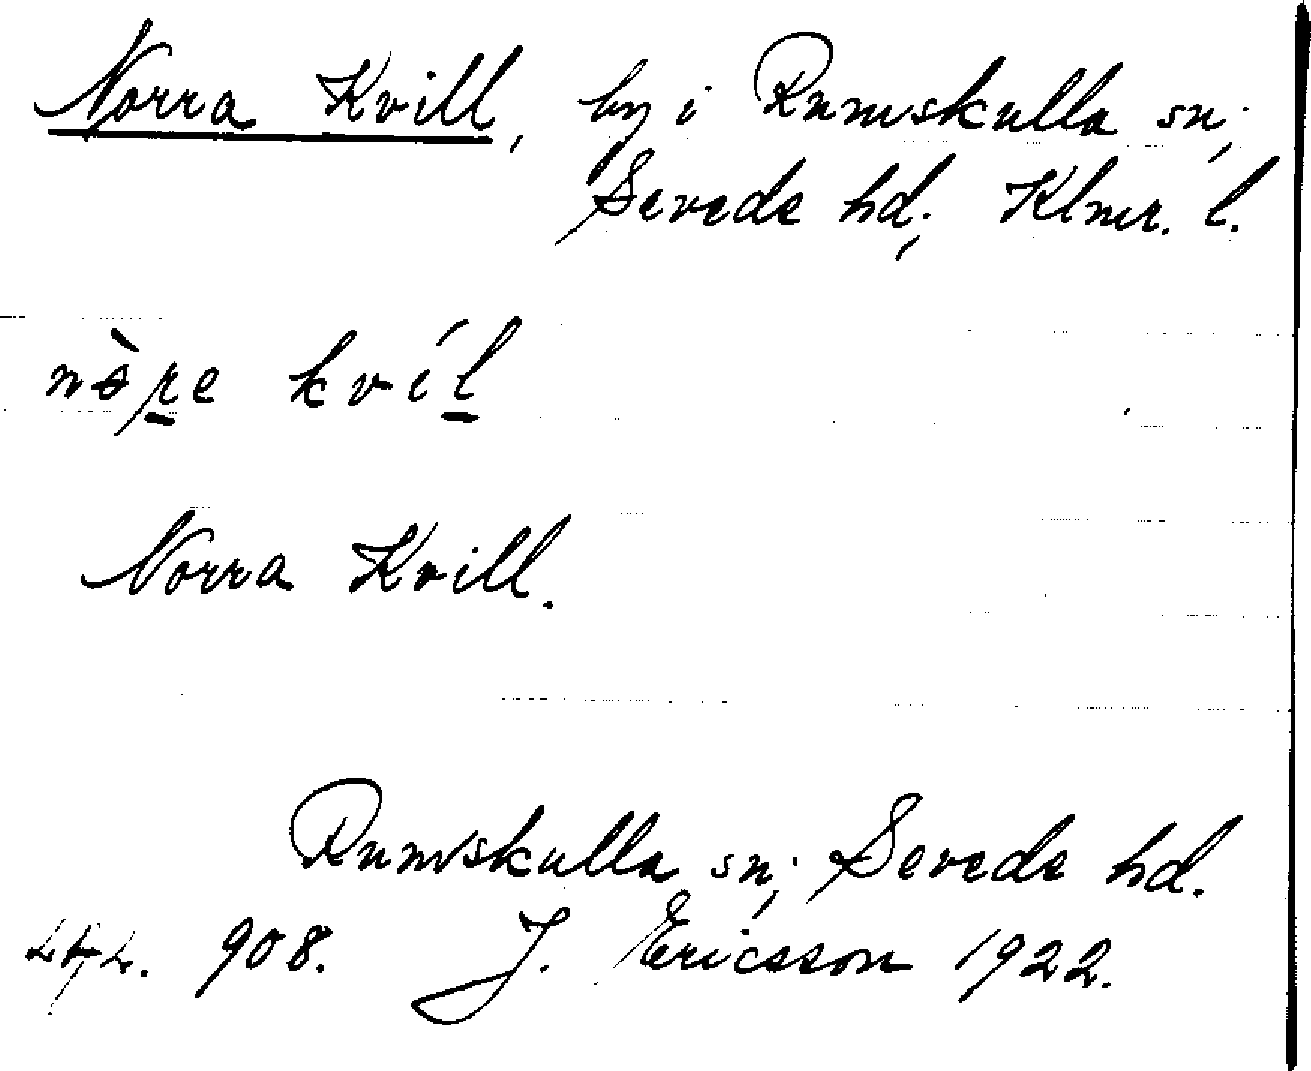 Norra Kvill, by i Rumskulla sn;
Sevede hd; Klmr. l.
kvíl
Norra Kvill.
Rumskulla sn; Sevede hd.
908. J. Ericsson 1922.